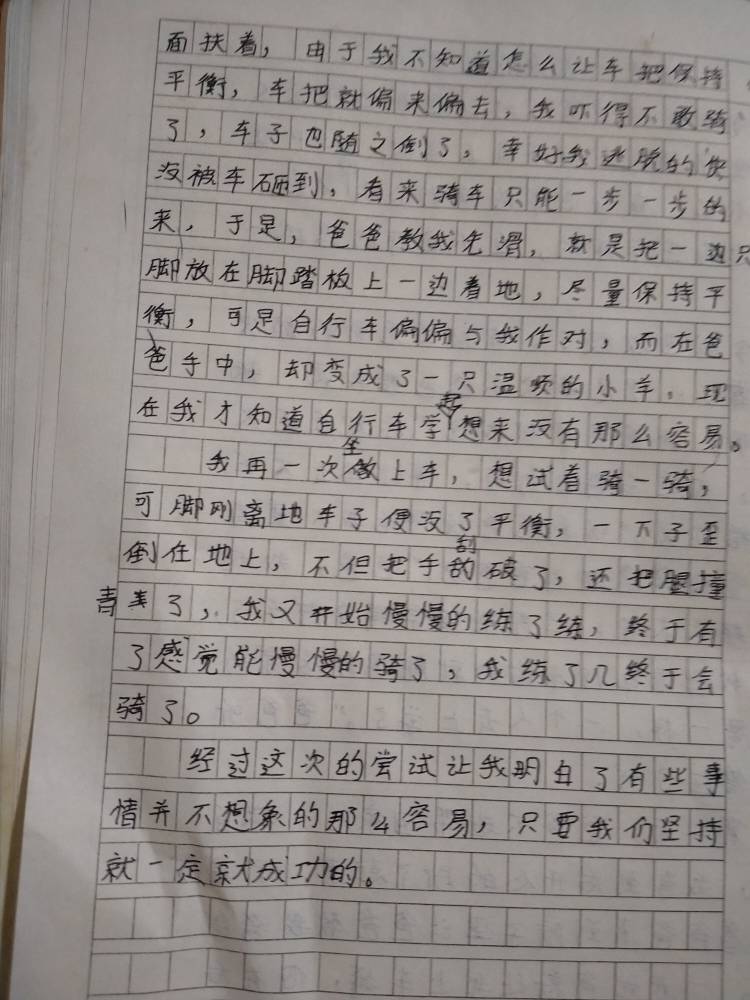 面扶着，由于我不知道怎么让车把保持
平衡，车把就偏来偏去，我吓得不敢骑
了，车子也随之倒了，幸好我逃脱的快
没被车砸到，看来骑车只能一步一步的
来，于是，爸爸教我先滑，就是把一边只
脚放在脚踏板上一边着地，尽量保持平
衡，可是自行车偏偏与我作对，而在爸
爸手中，却变成了一只温顺的小羊，现
在我才知道自行车学起想来没有那么容易。
我再一次坐上车，想试着骑一骑，
可脚刚离地车子便没了平衡，一下子歪
倒在地上，不但把手刮破了，还把腿撞
青了，我又开始慢慢的练了练，终于有
了感觉能慢慢的骑了，我练了几终于会
骑了。
经过这次的尝试让我明白了有些事
情并不想象的那么容易，只要我们坚持
就一定就成功的。